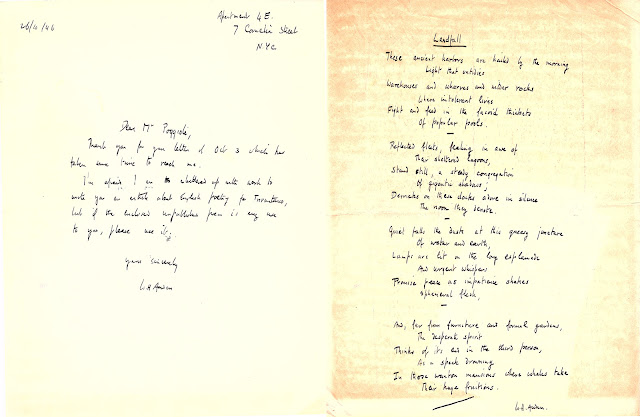 26/11/46
Apartment 4E.
7 Cornelia Street
N.Y.C
Dear Mr Poggioli,
Thank you for your letter of Oct 3 which has
taken some time to reach me.
I'm afraid I am so cluttered up with work to
write you an article about English poetry for Inventario,
but if the enclosed unpublished poem is any use
to you, please use it.
yours sincerely
W.H. Auden
Landfall
These ancient harbors are hailed by the morning
Light that untidies
Warehouses and wharves and wilder rocks
Where intolerant lives
Fight and feed in the fucoid thickets
Of popular pools.
Reflected fleets, feeling in awe of
Their sheltered lagoons,
Stand still, a steady congregation
Of gigantic shadows;
Derricks on these docks adore in silence
The noon they denote.
Quiet falls the dusk at this queasy juncture
Of water and earth,
Lamps are lit on the long esplanade
And urgent whispers
Promise peace as impatience shakes
Ephemeral flesh,
And, far from furniture and formal gardens,
The desperate spirit
Thinks of its end in the third person,
As a speck drowning
In those wanton mansions where whales take
Their huge fruitions.
W.H. Auden.